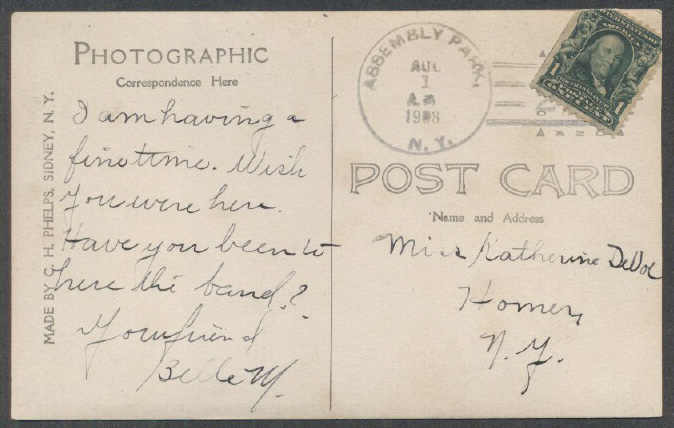 PHOTOGRAPHIC
Correspondence Here
I am having a
fine time. Wish
you were here.
Have you been to
here the band?
Your friend
Belle M.
MADE BY C. H. PHELPS, SIDNEY, N. Y.
ASSEMBLY PARK,
AUG
1
A.M.
1908
N. Y.
1
1
AZO
POST CARD
Name and Address
Miss Katherine DeVoe
Homer,
N.Y.